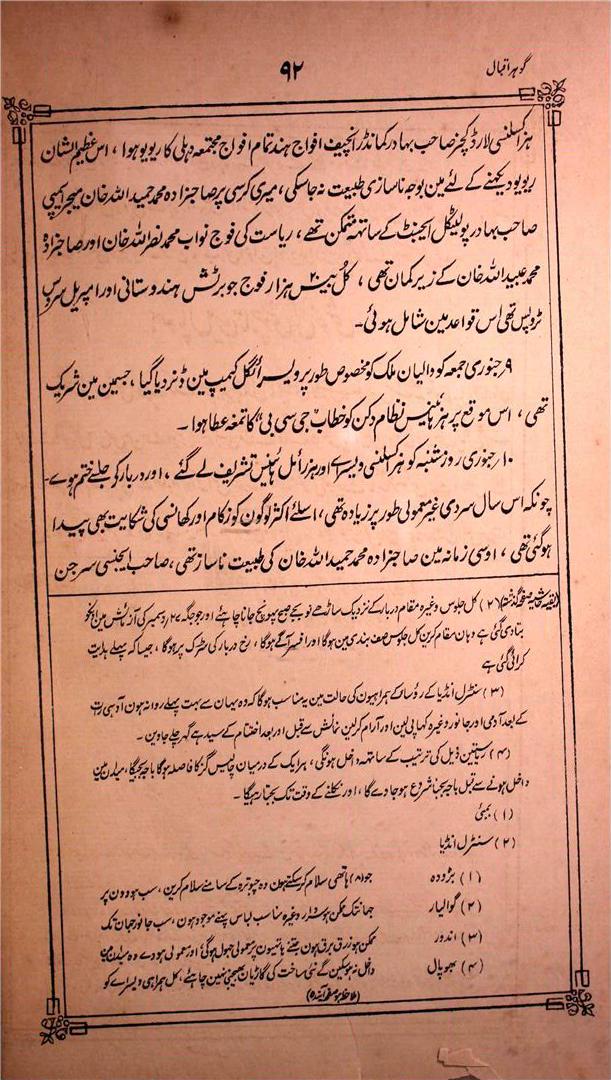 گوہر اقبال
۹۲
ہز اکسلنسی لارڈ کچنر صاحب بہادر کمانڈر انچیف افواج ہند تمام افواج مجتمعہ دہلی کا ریویو ہوا ، اس عظیم الشان
ریویو دیکھنے کے لئے مین بوجہ ناسازی طبیعت نہ جا سکی ، میری کرسی پر صاحبزادہ محمد حمید اللہ خان میجر امپی
صاحب بہادر پولیٹکل ایجنٹ کے ساتھ متمکن تھے ، ریاست کی فوج نواب محمد نصر اللہ خان اور صاحبزادہ
محمد عبید اللہ خان کے زیر کمان تھی ، کل بیس ہزار ۲۰ فوج جو برٹش ہندوستانی اور امپریل سروس
ٹروپس تھی اس قواعد مین شامل ہوئی۔
۹ر جنوری جمعہ کو والیان ملک کو مخصوص طور پر ویسرائیگل کیمپ مین ڈنر دیا گیا ، جسمین مین شریک
تھی ، اس موقع پر ہز ہائینس نظام دکن کو خطاب "جی سی بی" کا تمغہ عطا ہوا ۔
۱۰ر جنوری روز شنبہ کو ہز اکسلنسی ویسراے اور ہز رائل ہائینس تشریف لے گئے ، اور دربار کے جلسے ختم ہوے۔
چونکہ اس سال سردی غیر معمولی طور پر زیادہ تھی ، اسلئے اکثر لوگون کو زکام اور کھانسی کی شکایت بھی پیدا
ہو گئی تھی ، اوسی زمانہ مین صاحبزادہ محمد حمید اللہ خان کی طبیعت ناساز تھی ، صاحب ایجنسی سرجن
(بقیہ حاشیہ صفحہ گذشتہ) (۲) کل جلوس وغیرہ مقام دربار کے نزدیک ساڑھے نو بجے صبح پہونچ جانا چاہئے اور جو جگہ ۲۷ر دسمبر کی آزمائش مین انکو
بتا دی گئی ہے وہان مقام کرین کل جلوس صف بندی مین ہوگا اور افسر آگے ہوگا ، رخ دربار کی سڑک پر ہوگا ، جیسا کہ پہلے ہدایت
کرائی گئی ہے
(۳) سنٹرل انڈیا کے رؤسا کے ہمراہیون کی حالت مین یہ مناسب ہوگا کہ وہ یہان سے بہت پہلے روانہ ہون آدھی رات
کے بعد آدمی اور جانور وغیرہ کھا پی لین اور آرام کر لین نمائش سے قبل اور بعد اختتام کے سیدھے گھر چلے جاوین ۔
(۴) ریاستین ذیل کی ترتیب کے ساتھ داخل ہونگی ، ہر ایک کے درمیان چالیس گز کا فاصلہ ہوگا باجہ بجیگا ، میدان مین
داخل ہونے سے قبل باجہ بجنا شروع ہو جاوے گا ، اور نکلنے کے وقت تک بجتا رہیگا ۔
(۱) بمبئی
(۲) سنٹرل انڈیا
(۱) بڑودہ
(۲) گوالیار
(۳) اندور
(۴) بھوپال
جو (۸) ہاتھی سلام کر سکتے ہون وہ چبوترہ کے سامنے سلام کرین ، سب ہودون پر
جہانتک ممکن ہو سوار وغیرہ مناسب لباس پہنے موجود ہون ، سب جانور جہان تک
ممکن ہو زرق برق ہون جتنے ہاتھیون پر معمولی جھول ہوگی اور معمولی ہودے وہ میدان مین
داخل نہ ہو سکین گے نئی ساخت کی گاڑیان بھیجنی نہین چاہئے ، کل ہمراہی ویسراے کو
(ملاحظہ ہو صفحہ آیندہ)